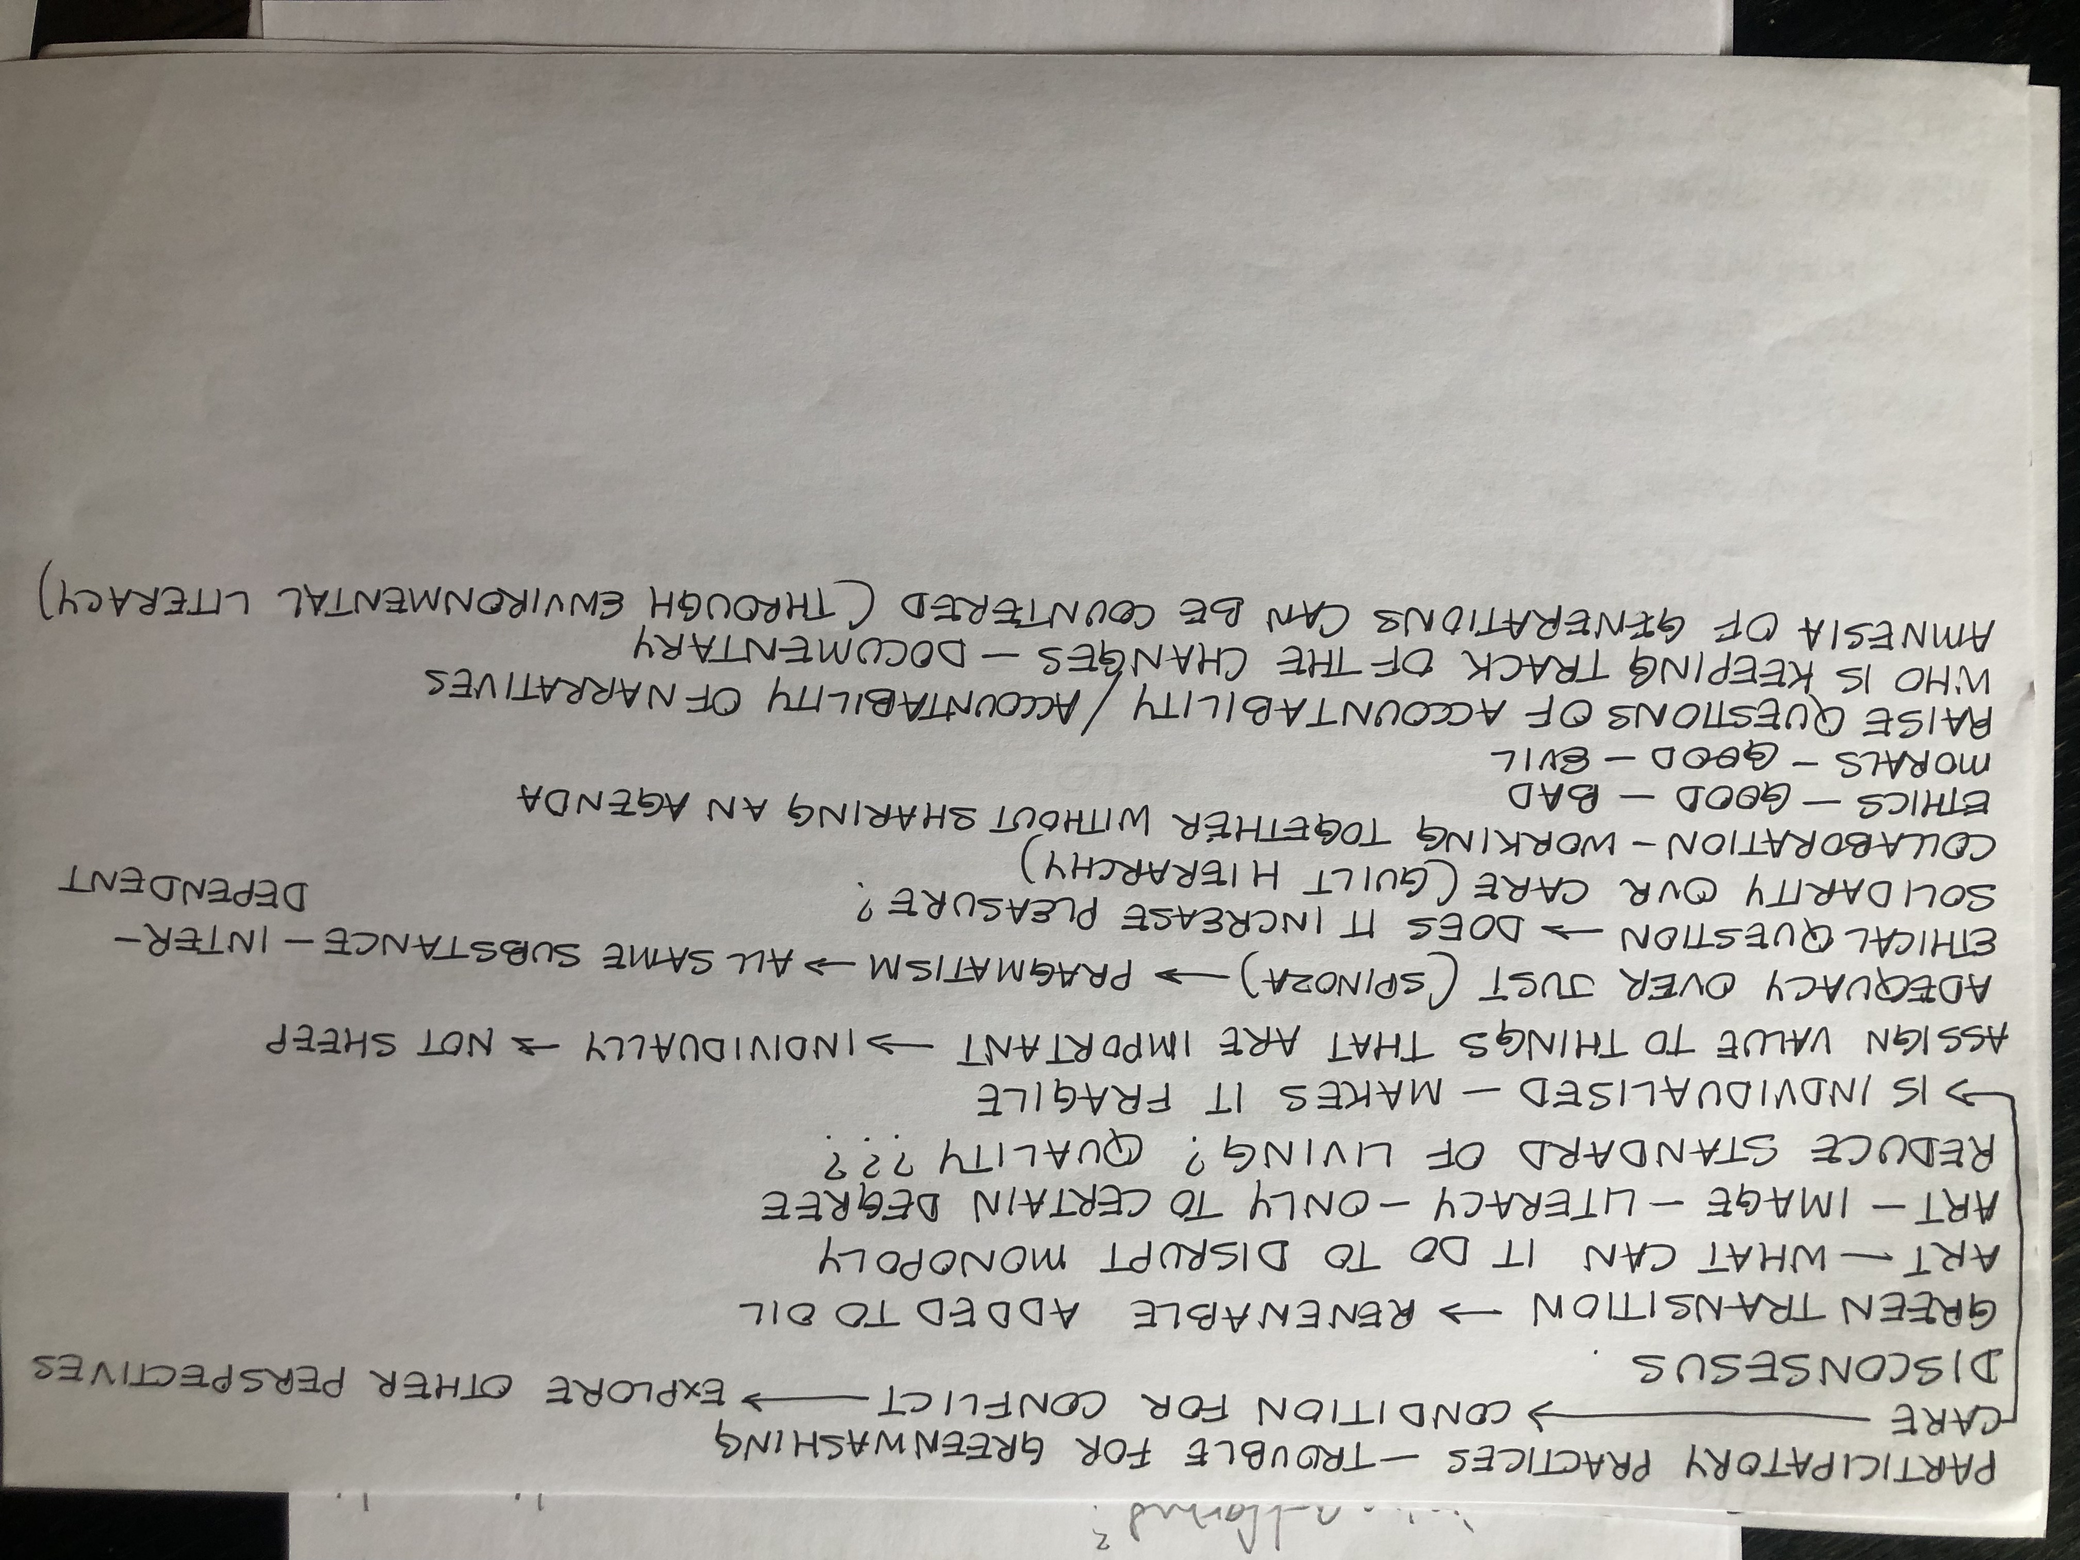 PARTICIPATORY PRACTICES - TROUBLE FOR GREENWASHING
CARE → CONDITION FOR CONFLICT → EXPLORE OTHER PERSPECTIVES
DISCONSESUS
GREEN TRANSITION → RENENABLE ADDED TO OIL
ART - WHAT CAN IT DO TO DISRUPT MONOPOLY
ART - IMAGE - LITERACY - ONLY TO CERTAIN DEGREE
REDUCE STANDARD OF LIVING? QUALITY???
→ IS INDVIDUALISED - MAKES IT FRAGILE
ASSIGN VALUE TO THINGS THAT ARE IMPORTANT → INDIVIDUALLY → NOT SHEEP
ADEQUACY OVER JUST (SPINOZA) → PRAGMATISM → ALL SAME SUBSTANCE - INTER-
DEPENDENT
ETHICAL QUESTION → DOES IT INCREASE PLEASURE?
SOLIDARITY OVR CARE (GUILT HIERARCHY)
COLLABORATION - WORKING TOGETHER WITHOUT SHARING AN AGENDA
ETHICS - GOOD - BAD
MORALS - GOOD - EVIL
RAISE QUESTIONS OF ACCOUNTABILITY / ACCOUNTABILITY OF NARRATIVES
WHO IS KEEPING TRACK OF THE CHANGES - DOCUMENTARY
AMNESIA OF GENERATIONS CAN BE COUNTERED (THROUGH ENVIRONMENTAL LITERACY)